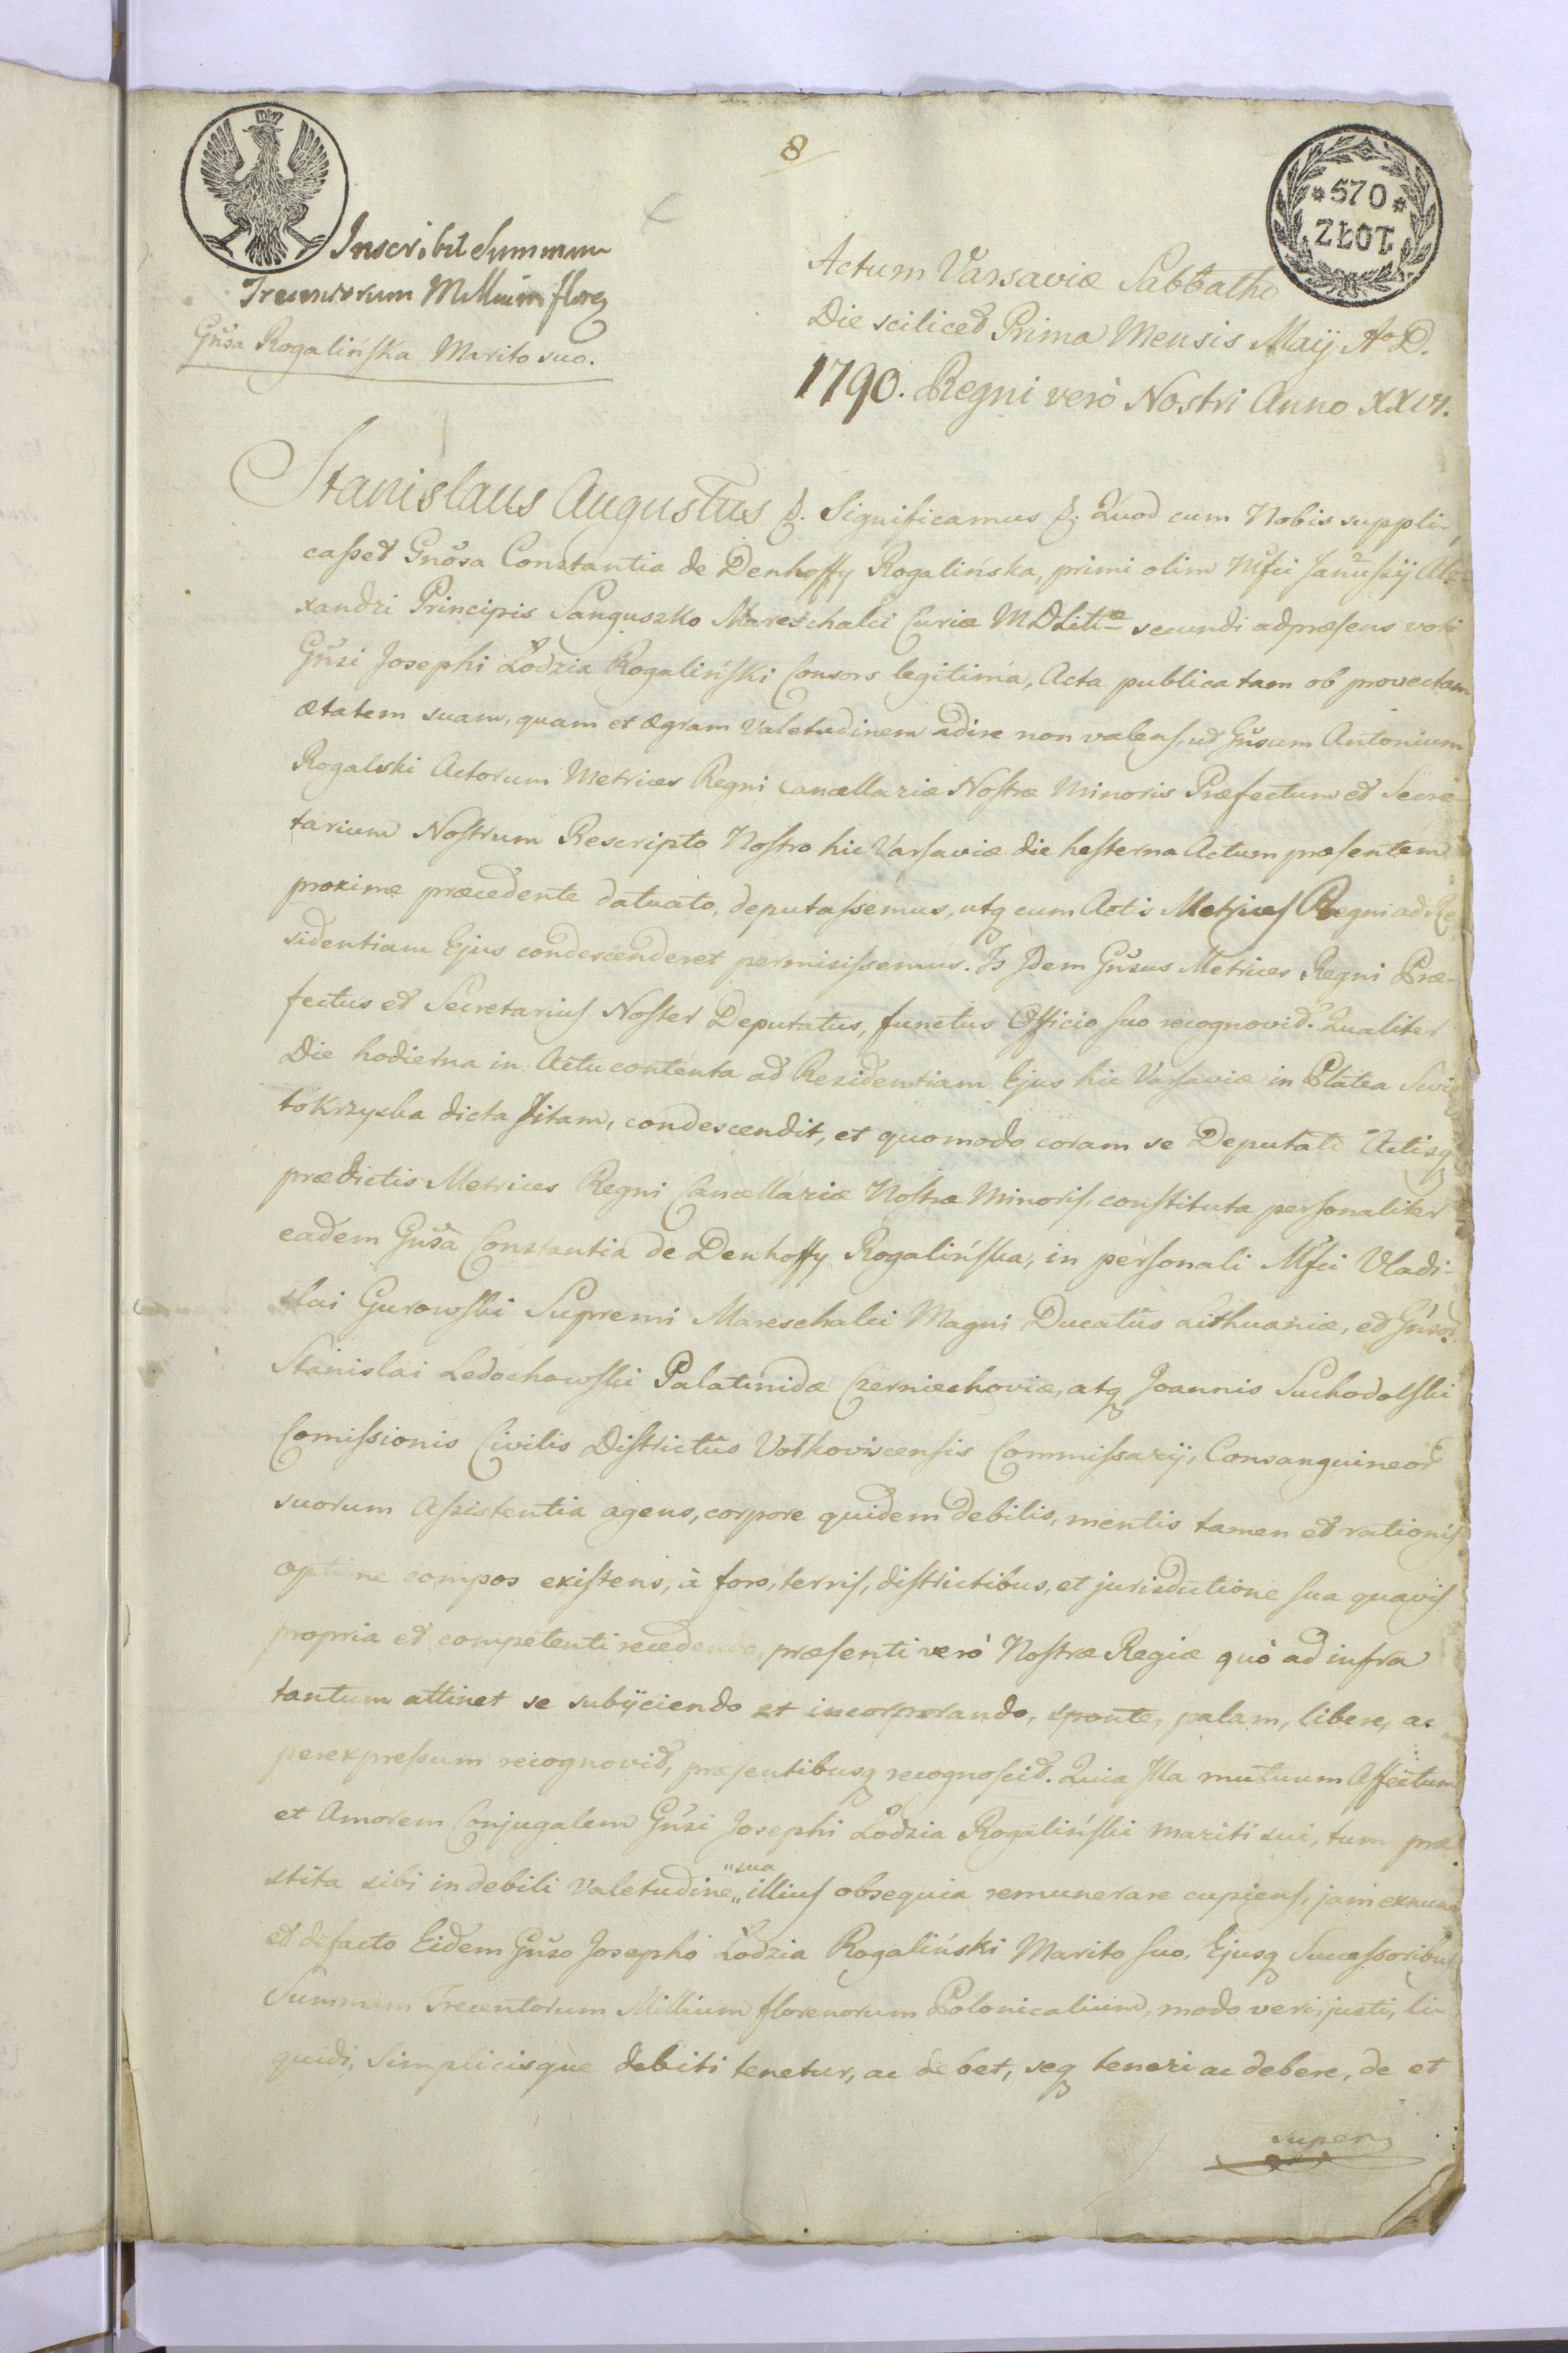 8
570
ZŁOT
Inscribit Summam
Trecentorum Millium floreq
Gnsa Rogalińska Marito suo.
Actum Varsaviæ Sabbatho
Die scilicet Prima Mensis Maij Ao D.
1790. Regni verò Nostri Anno XXVI.
Stanislaus Augustus &. Significamus &. Quod cum Nobis suppli-
casset Gnosa Constantia de Denhoffy Rogalińska, primi olim Mfci Januszij Ale-
xandri Principis Sanguszko Mareschalci Curiæ M D Litiæ secundi ad præsens voti
Gnsi Josephi Łodzia Rogaliński Consors legitima, Acta publica tam ob provectam
ætatem suam, quam et ægram Valetudinem adire non valens, ut Gnsum Antonium
Rogalski Actorum Metrices Regni Cancellariæ Nostræ Minoris Præfectum et Secre-
tarium Nostrum Rescripto Nostro hic Varsaviæ die hesterna Actum præsentem
proxime præcedente datuato, deputassemus, utq cum Actis Metrices Regni ad Re-
sidentiam Ejus condescenderet permisissemus. Is Idem Gnsus Metrices Regni Præ-
fectus et Secretarius Noster Deputatus, functus Officio suo recognovit. Qualiter
Die hodierna in Actu contenta ad Rezidentiam Ejus hic Varsaviæ in Platea Swię
tokrzyska dicta sitam, condescendit, et quomodo coram se Deputato Actisq
prædictis Metrices Regni Cancellariæ Nostræ Minoris, constituta personaliter
eadem Gnsa Constantia de Denhoffy Rogalińska, in personali Mfci Vladi-
slai Gurowski Supremi Mareschalci Magni Ducatûs Lithuaniæ, et Gnsor
Stanislai Ledochowski Palatinidæ Czerniechoviæ, atq Joannis Suchodolski
Comissionis Civilis Districtûs Vołkoviscensis Commissarij, Consanguineor
suorum Assistentia agens, corpore quidem debilis, mentis tamen et rationis
optime compos existens, à foro, terris, districtibus, et jurisdictione sua quavis
propria et competenti recedendo, præsenti verò Nostræ Regiæ quò ad infra
tantum attinet se subijciendo et incorporando, sponte, palam, libere, ac
per expressum recognovit, præsentibusq recognoscit. Quia Illa mutuum Affectum
et Amorem Conjugalem Gnsi Josephi Łodzia Rogaliński mariti sui, tum præ-
stita sibi in debili Valetudine "sua illius obsequia remunerare cupiens, jam exnunc
et defacto Eidem Gnso Josepho Łodzia Rogaliński Marito suo, Ejusq Successoribus
Summam Trecentorum Millium florenorum Polonicalium, modo veri, justi, li-
quidi, Simplicisque debiti tenetur, ac debet, seq teneri ac debere, de et
super